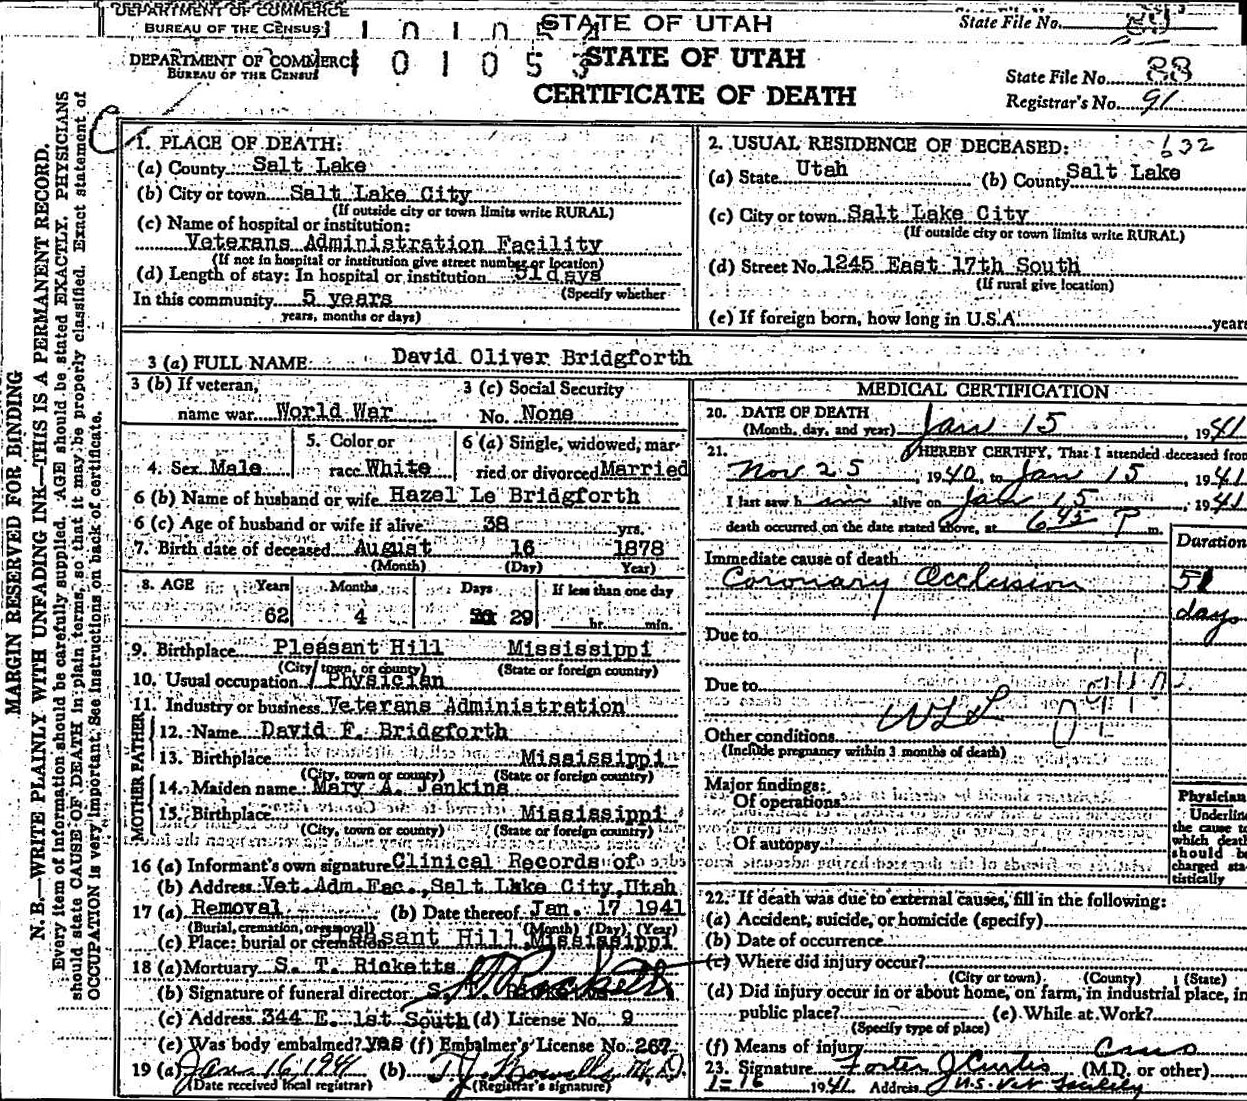 DEPARTMENT OF COMMERCE
BUREAU OF THE CENSUS
STATE OF UTAH
State File No.
DEPARTMENT OF COMMERCE
BUREAU OF THE CENSUS
101053
STATE OF UTAH
CERTIFICATE OF DEATH
State File No. 88
Registrar's No. 91
MARGIN RESERVED FOR BINDING
N. B.—WRITE PLAINLY WITH UNFADING INK—THIS IS A PERMANENT RECORD.
Every item of information should be carefully supplied. AGE should be stated EXACTLY. PHYSICIANS
should state CAUSE OF DEATH in plain terms, so that it may be properly classified. Exact statement of
OCCUPATION is very important. See instructions on back of certificate.
1. PLACE OF DEATH:
(a) County Salt Lake
(b) City or town Salt Lake City
(If outside city or town limits write RURAL)
(c) Name of hospital or institution:
Veterans Administration Facility
(If not in hospital or institution give street number or location)
(d) Length of stay: In hospital or institution 51 days
(Specify whether
In this community 5 years
years, months or days)
2. USUAL RESIDENCE OF DECEASED: 632
(a) State Utah (b) County Salt Lake
(c) City or town Salt Lake City
(If outside city or town limits write RURAL)
(d) Street No. 1245 East 17th South
(If rural give location)
(e) If foreign born, how long in U.S.A. years
3 (a) FULL NAME David Oliver Bridgforth
3 (b) If veteran,
name war World War
3 (c) Social Security
No. None
4. Sex Male
5. Color or
race White
6 (a) Single, widowed, mar-
ried or divorced Married
6 (b) Name of husband or wife Hazel Le Bridgforth
6 (c) Age of husband or wife if alive 38 yrs.
7. Birth date of deceased August 16 1878
(Month) (Day) Year)
8. AGE Years Months Days If less than one day
62 4 29 hr. min.
9. Birthplace Pleasant Hill Mississippi
(City, town, or county) (State or foreign country)
10. Usual occupation Physician
11. Industry or business Veterans Administration
FATHER
12. Name David F. Bridgforth
13. Birthplace Mississippi
(City, town or county) (State or foreign country)
MOTHER
14. Maiden name Mary A. Jenkins
15. Birthplace Mississippi
(City, town or county) (State or foreign country)
16 (a) Informant's own signature Clinical Records of
(b) Address Vet.Adm.Fac., Salt Lake City, Utah
17 (a) Removal (b) Date thereof Jan. 17 1941
(Burial, cremation, or removal) (Month) (Day) (Year)
(c) Place: burial or cremation Pleasant Hill Mississippi
18 (a) Mortuary S. T. Ricketts
(b) Signature of funeral director
(c) Address 344 E. 1st South (d) License No. 9
(e) Was body embalmed? yes (f) Embalmer's License No. 267
19 (a) Jan 16 1941 (b)
(Date received local registrar) (Registrar's signature)
MEDICAL CERTIFICATION
20. DATE OF DEATH
(Month, day, and year) Jan 15, 1941
21. I HEREBY CERTIFY, That I attended deceased from
Nov 25, 1940, to Jan 15, 1941
I last saw him alive on Jan 15, 1941
death occurred on the date stated above, at 6:45 P m.
Duration
Immediate cause of death
Coronary Occlusion 51
days
Due to
Due to
Other conditions
(Include pregnancy within 3 months of death)
Major findings:
Of operations
Of autopsy
Physician
Underline
the cause to
which death
should be
charged sta-
tistically
22. If death was due to external causes, fill in the following:
(a) Accident, suicide, or homicide (specify)
(b) Date of occurrence
(c) Where did injury occur?
(City or town) (County) (State)
(d) Did injury occur in or about home, on farm, in industrial place, in
public place? (e) While at Work?
(Specify type of place)
(f) Means of injury
23. Signature Foster J Curtis (M.D. or other)
1-16 1941 Address U.S. Vet Facility